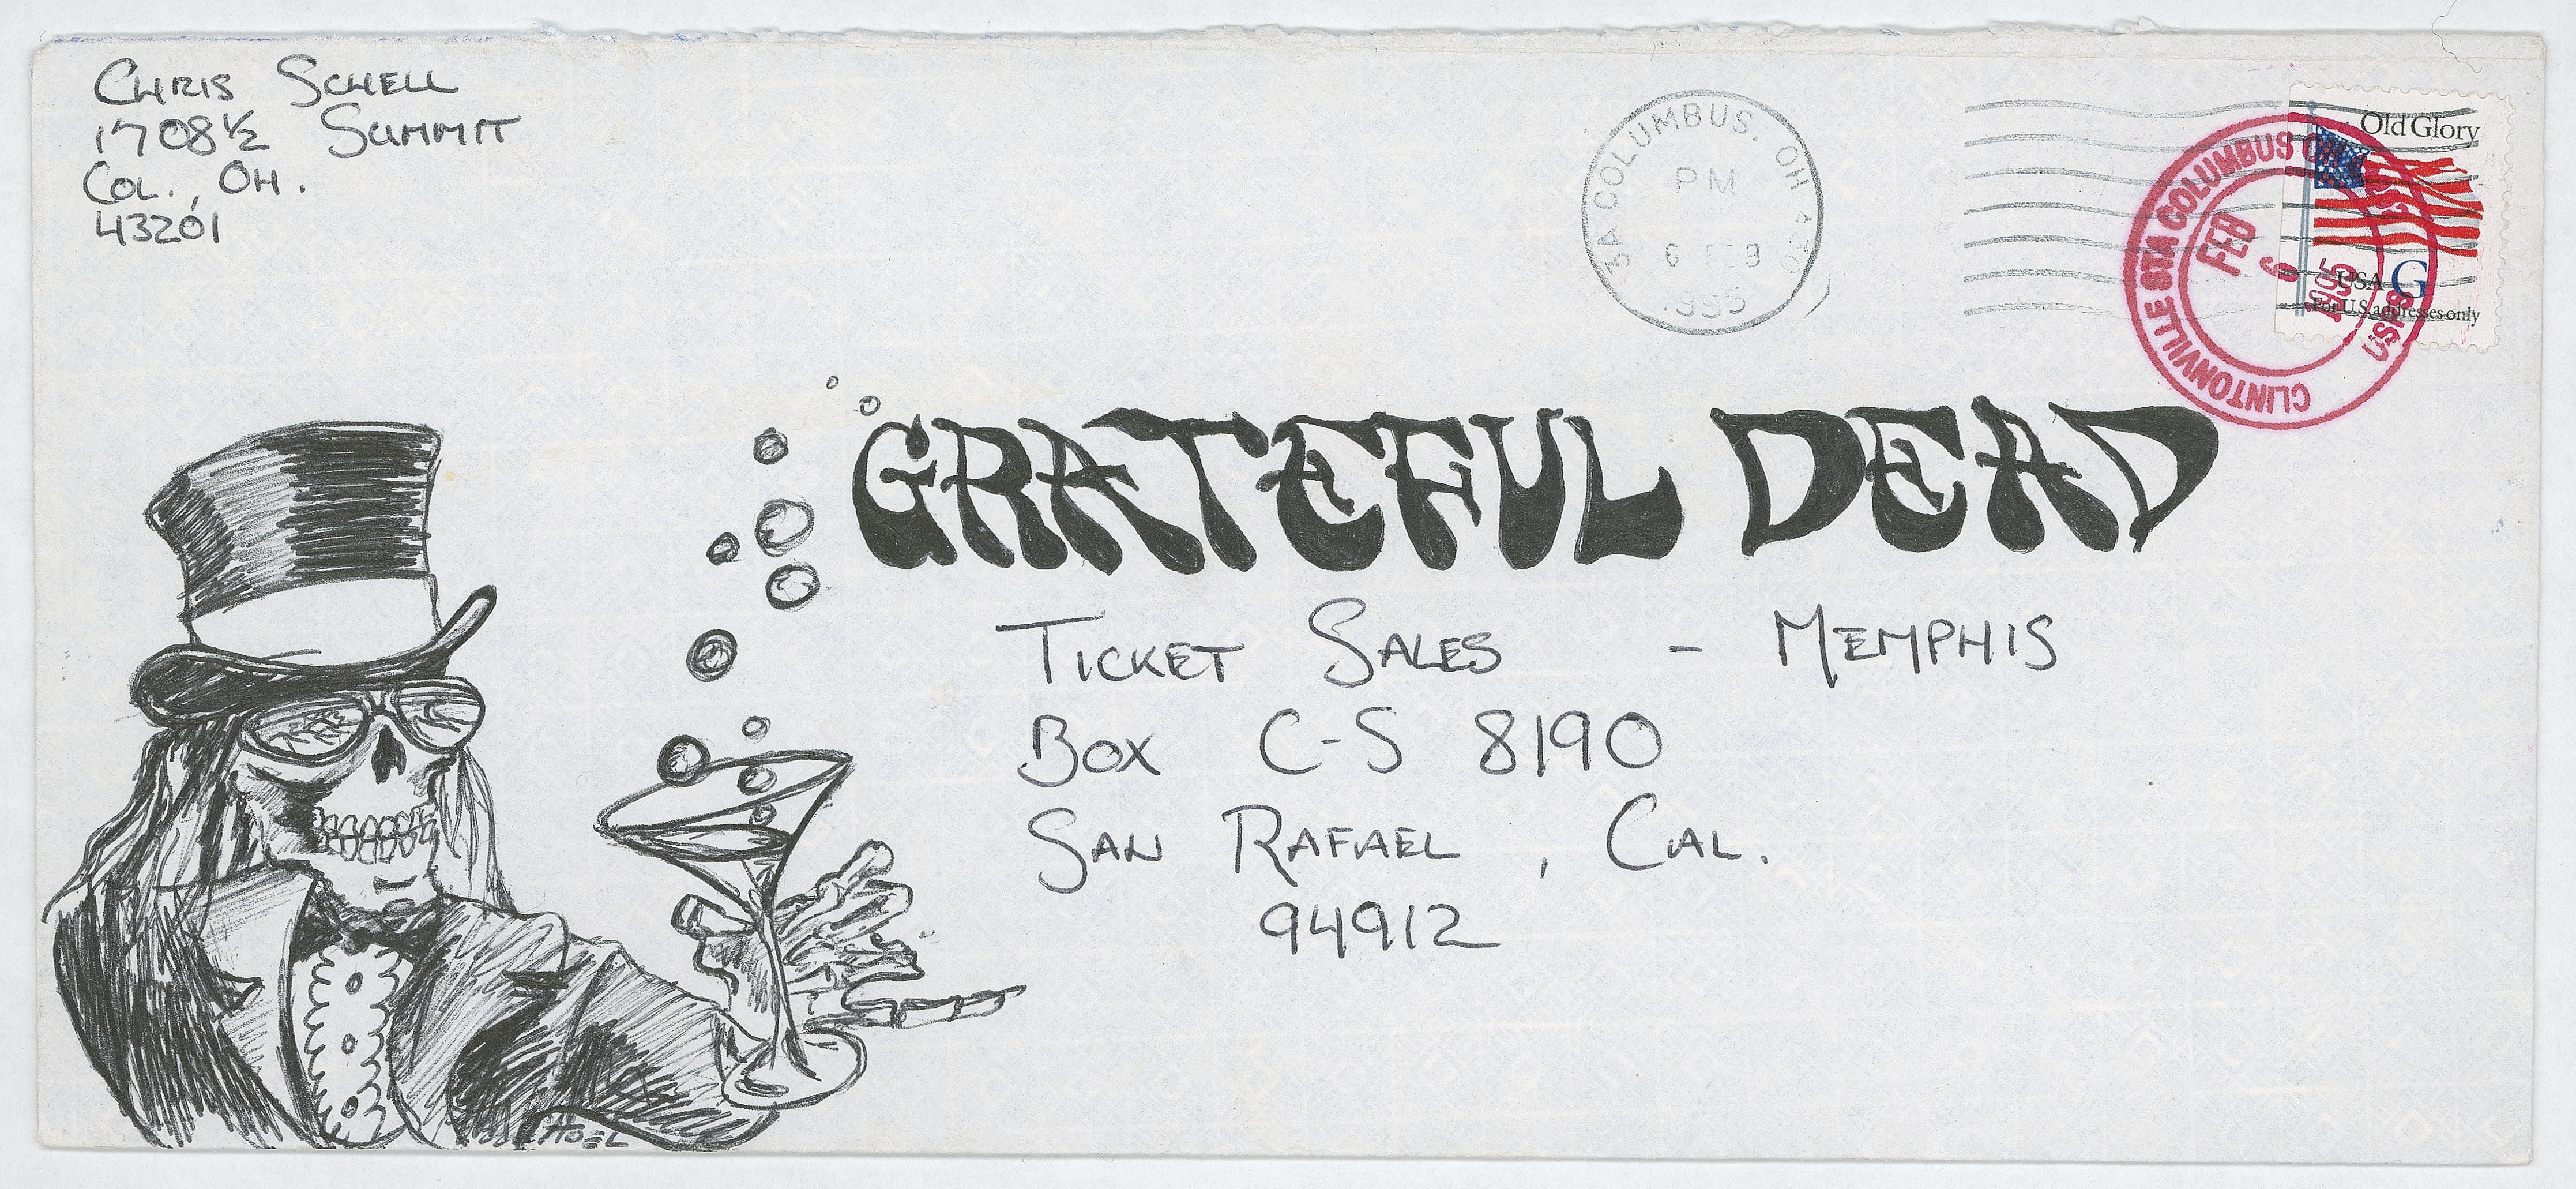 CHRIS SCHELL
1708½ SUMMIT
COL., OH.
43201
COLUMBUS, OH
PM
1995
Old Glory
USA G
For U.S. addresses only
CLINTONVILLE STA COLUMBUS
FEB
6
1995
USPS
GRATEFUL DEAD
TICKET SALES - MEMPHIS
BOX C-S 8190
SAN RAFAEL, CAL.
94912